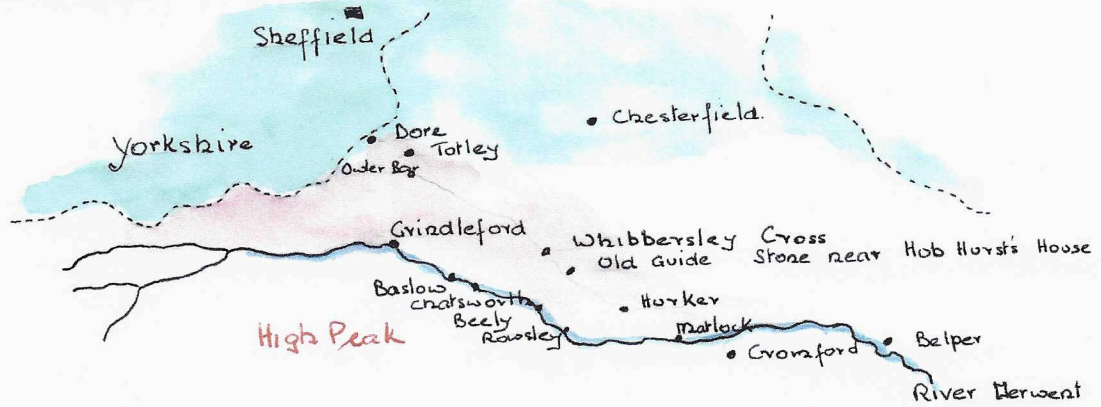 Sheffield
Yorkshire
Dore
Totley
Owler Bar
Chesterfield.
Grindleford
Whibbersley Cross
Old Guide Stone near Hob Hurst's House
Baslow
Chatsworth
Beely
Rowsley
Hurker
Matlock
Cromford
Belper
High Peak
River Derwent